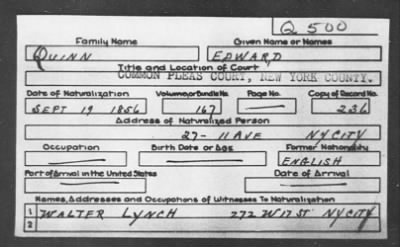 Q 500
Family Name Given Name or Names
QUINN EDWARD
Title and Location of Court
COMMON PLEAS COURT, NEW YORK COUNTY.
Date of Naturalization Volume or Bundle No. Page No. Copy of Record No.
SEPT 19 1856 167 — 236
Address of Naturalized Person
27 - 11 AVE NYCITY
Occupation Birth Date or Age Former Nationality
— — ENGLISH
Port of Arrival in the United States Date of Arrival
— —
Names, Addresses and Occupations of Witnesses To Naturalization
1 WALTER LYNCH 272 W 17 ST NYCITY
2